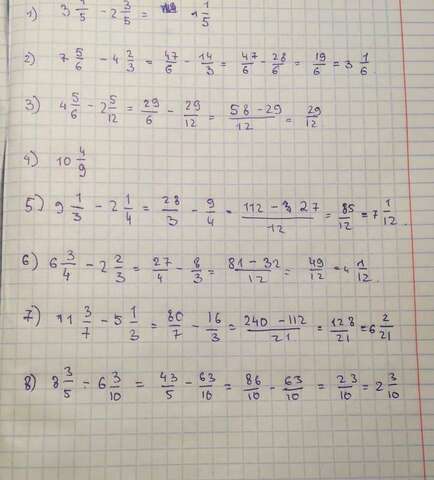 1) 3 4/5 - 2 3/5 = 1 1/5
2) 7 5/6 - 4 2/3 = 47/6 - 14/3 = 47/6 - 28/6 = 19/6 = 3 1/6.
3) 4 5/6 - 2 5/12 = 29/6 - 29/12 = 58 - 29/12 = 29/12
4) 10 4/9
5) 9 1/3 - 2 1/4 = 28/3 - 9/4 = 112 - 27/12 = 85/12 = 7 1/12.
6) 6 3/4 - 2 2/3 = 27/4 - 8/3 = 81 - 32/12 = 49/12 = 4 1/12.
7) 11 3/7 - 5 1/3 = 80/7 - 16/3 = 240 - 112/21 = 128/21 = 6 2/21
8) 8 3/5 - 6 3/10 = 43/5 - 63/10 = 86/10 - 63/10 = 23/10 = 2 3/10